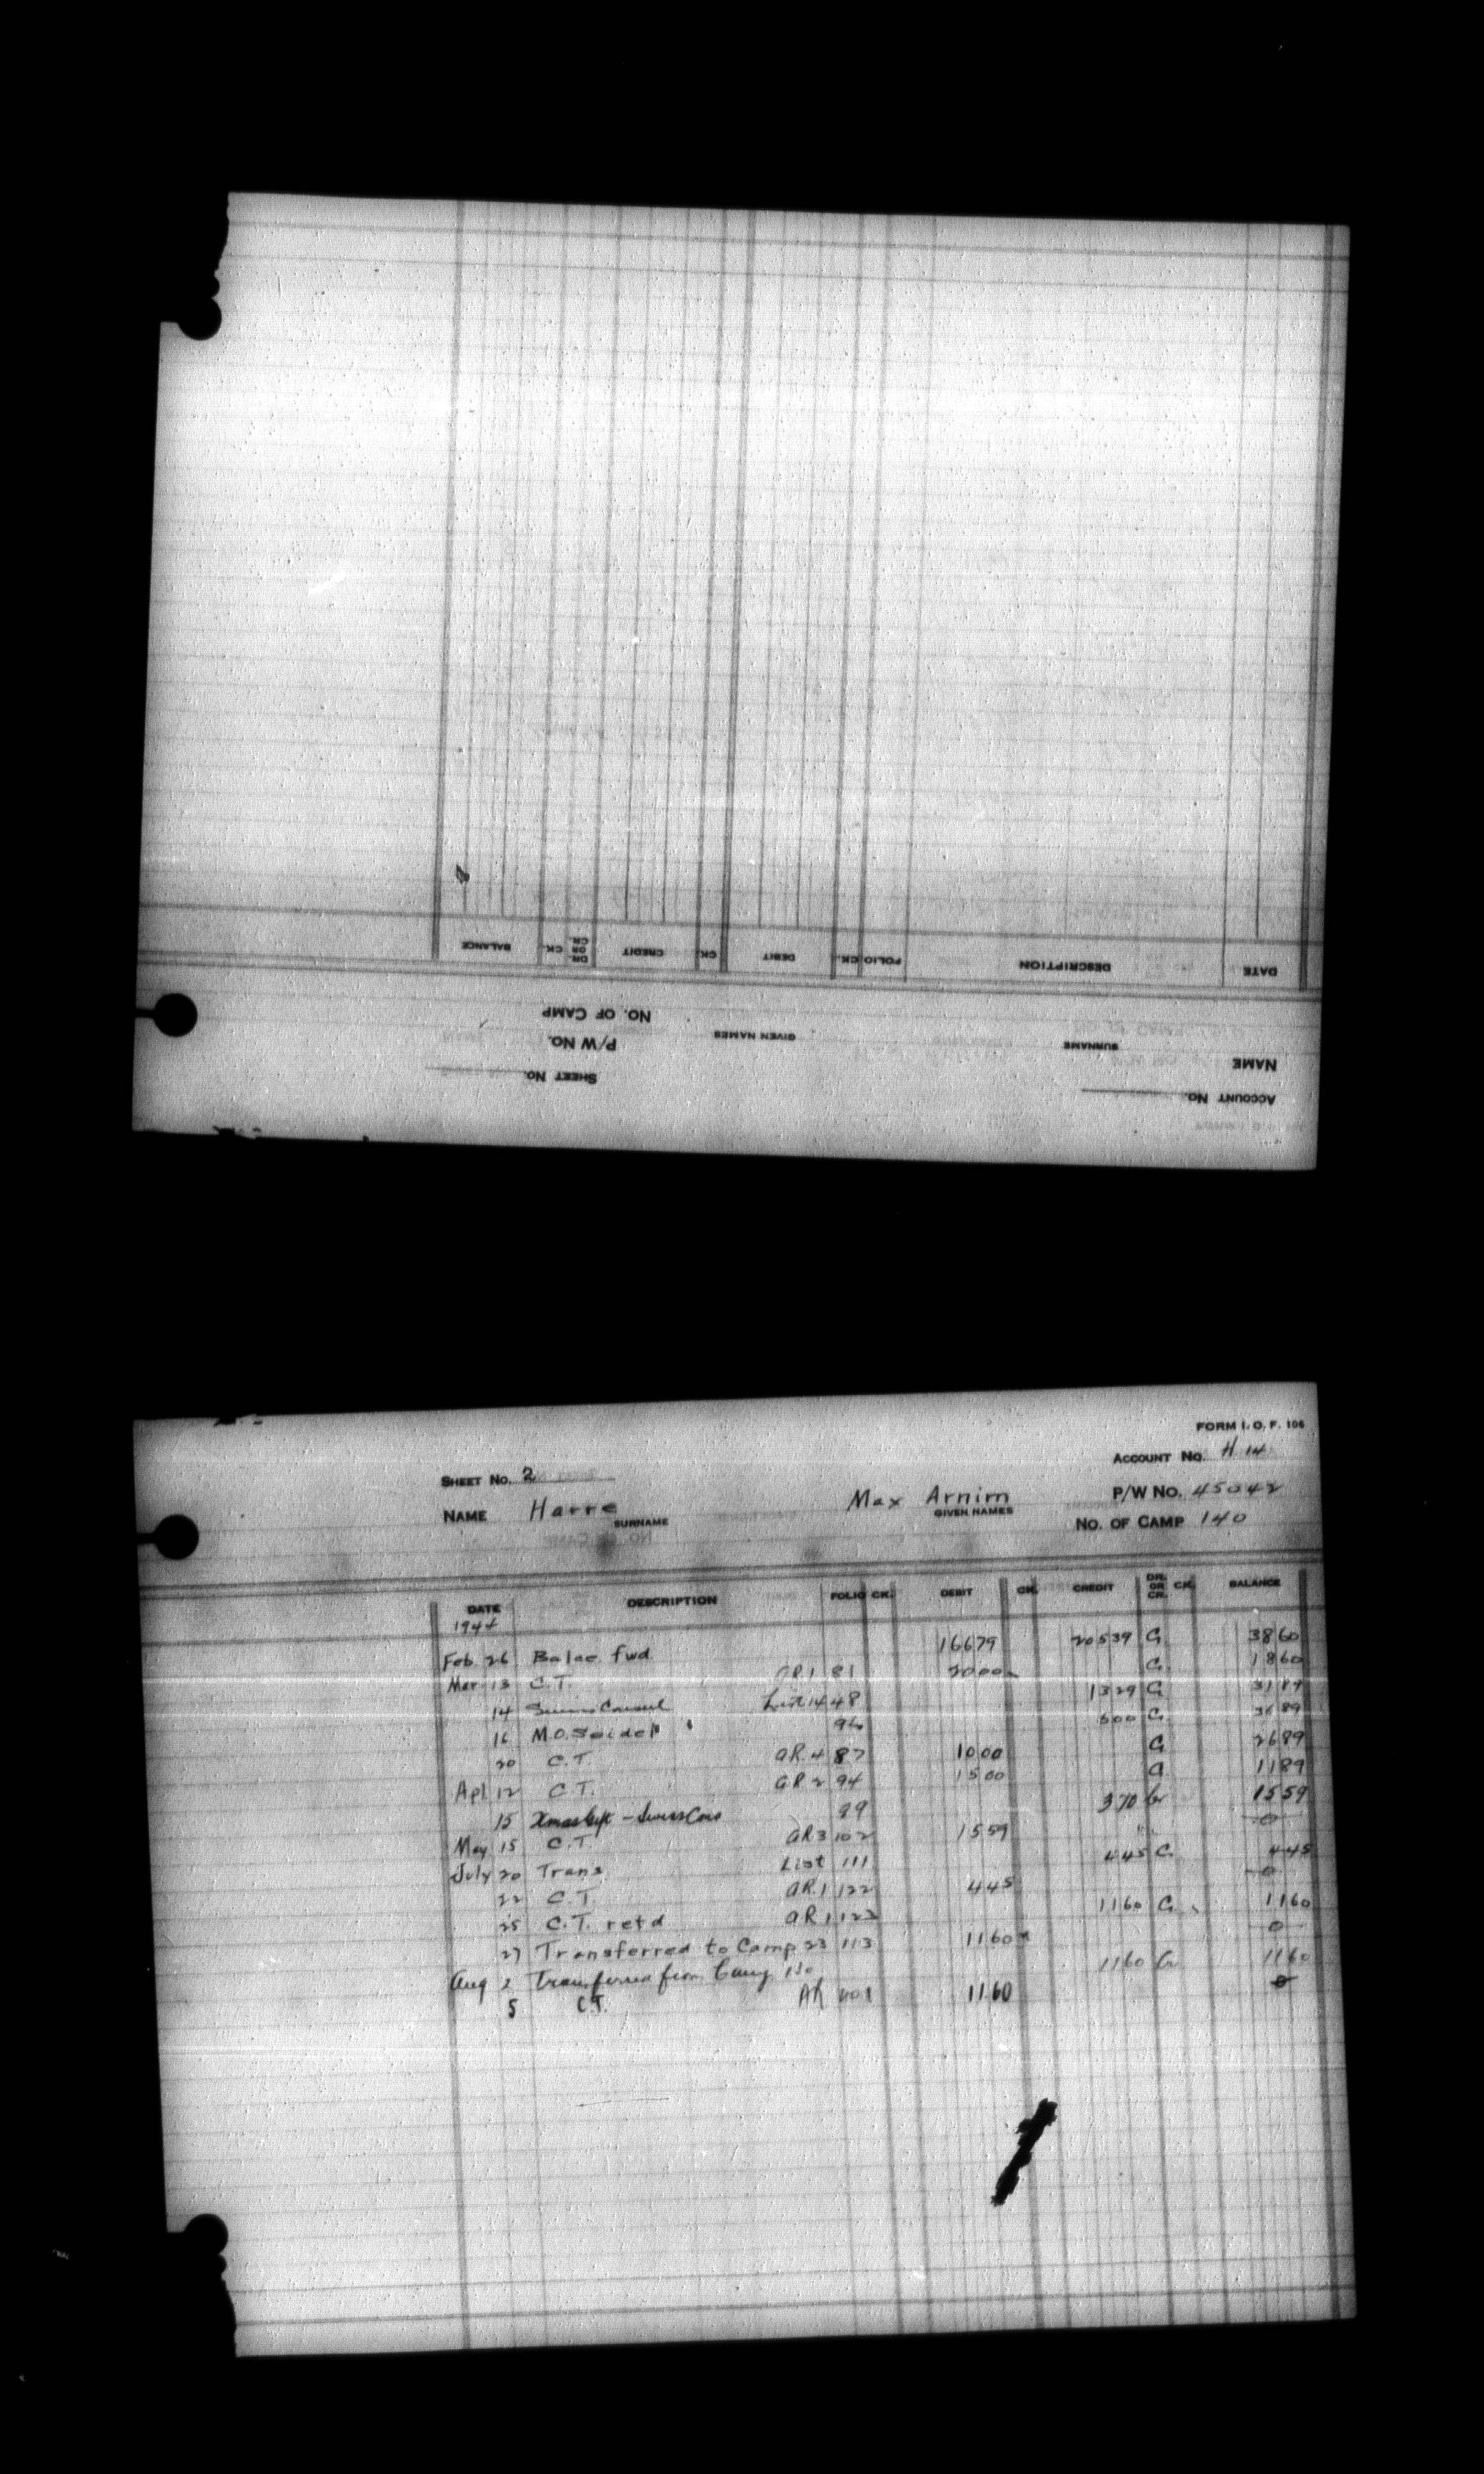 BALANCE CK. DR. OR CR. CREDIT CK. DEBIT CK. FOLIO DESCRIPTION DATE
NO. OF CAMP
P/W NO. GIVEN NAMES SURNAME
SHEET NO. NAME
ACCOUNT NO.
FORM I. O. F. 106
SHEET NO. 2 ACCOUNT NO. H 14
NAME Harre Max Arnim P/W NO. 45042
SURNAME GIVEN NAMES
NO. OF CAMP 140
DATE DESCRIPTION FOLIO CK. DEBIT CK. CREDIT DR. OR CR. CK. BALANCE
1944
Feb. 26 Balce fwd. 16679 20539 Cr 3860
Mar 13 C.T. AR1 81 2000 Cr 1860
14 Swiss Consul List 14 48 1329 Cr 3189
16 M.O. Seidel 96 500 Cr 3689
20 C.T. AR4 87 1000 Cr 2689
Apl 12 C.T. AR2 94 1500 Cr 1189
15 Xmas Gift - Swiss Cons 99 370 Cr 1559
May 15 C.T. AR3 102 1559 0
July 20 Trans List 111 445 Cr 445
22 C.T. AR1 122 445 0
25 C.T. retd AR1 122 1160 Cr 1160
27 Transferred to Camp 23 113 1160 0
Aug 2 Transferred from Camp 1160 Cr 1160
5 C.T. AR 1160 0